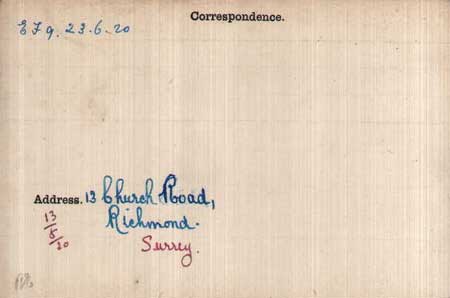 Correspondence.
E F 9. 23.6.20
Address. 13 Church Road,
Richmond.
Surrey.
13/5/20